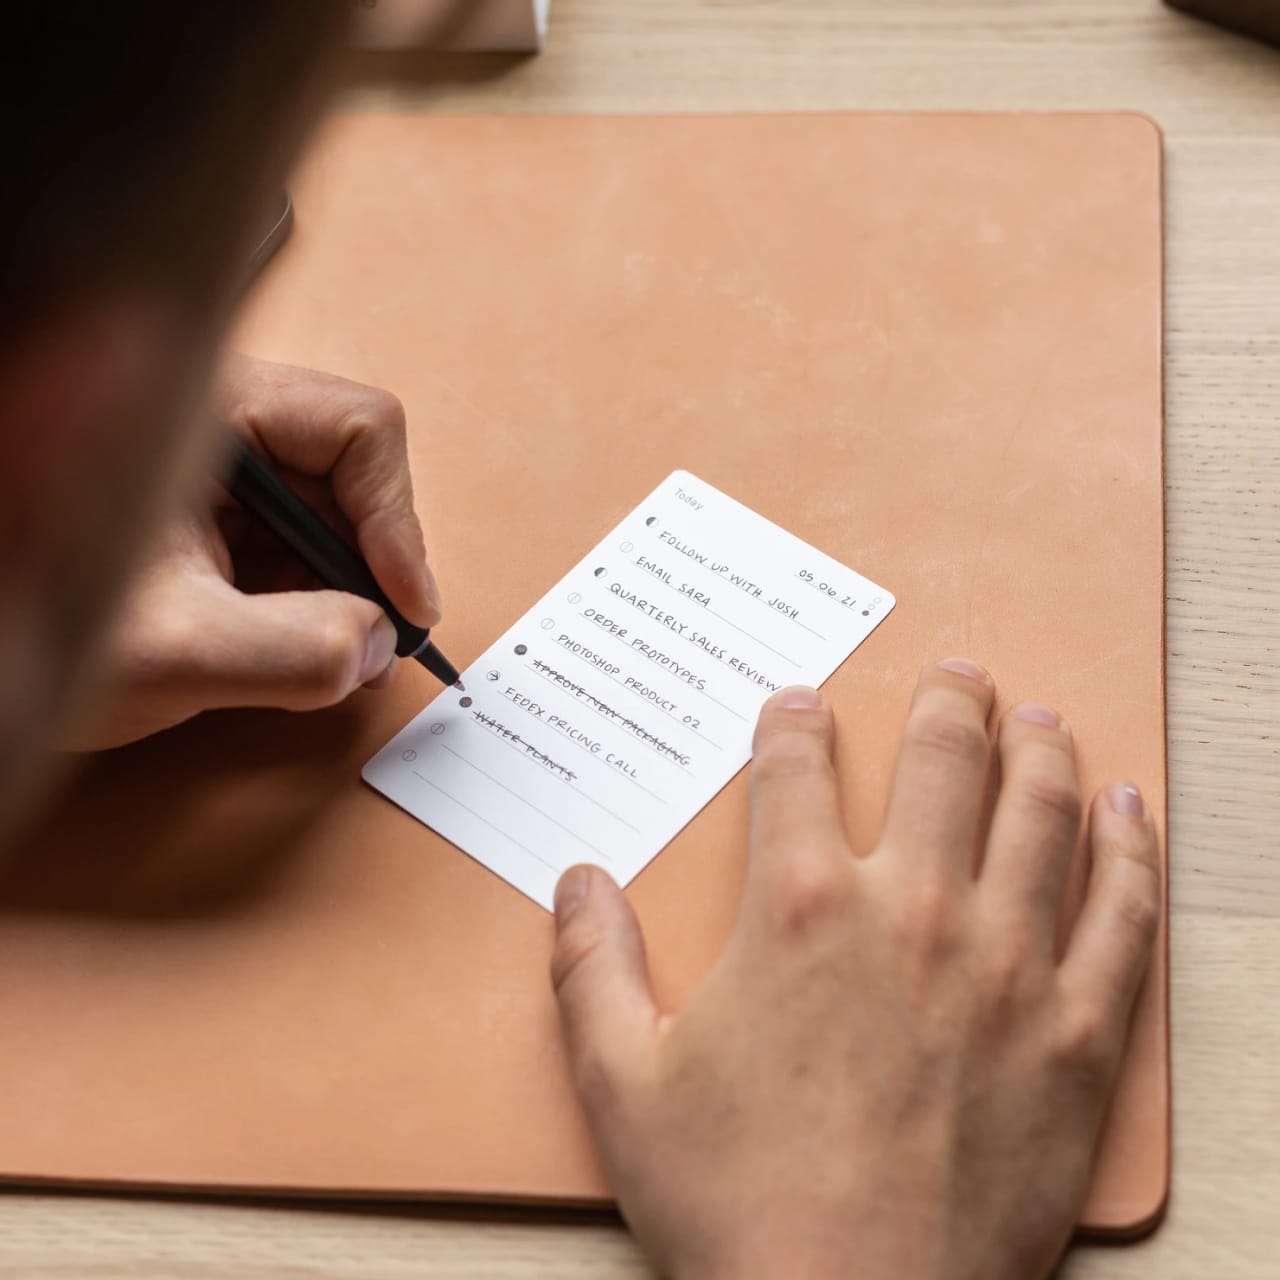 Today
05.06.21
FOLLOW UP WITH JOSH
EMAIL SARA
QUARTERLY SALES REVIEW
ORDER PROTOTYPES
PHOTOSHOP PRODUCT 02
APPROVE NEW PACKAGING
FEDEX PRICING CALL
WATER PLANTS